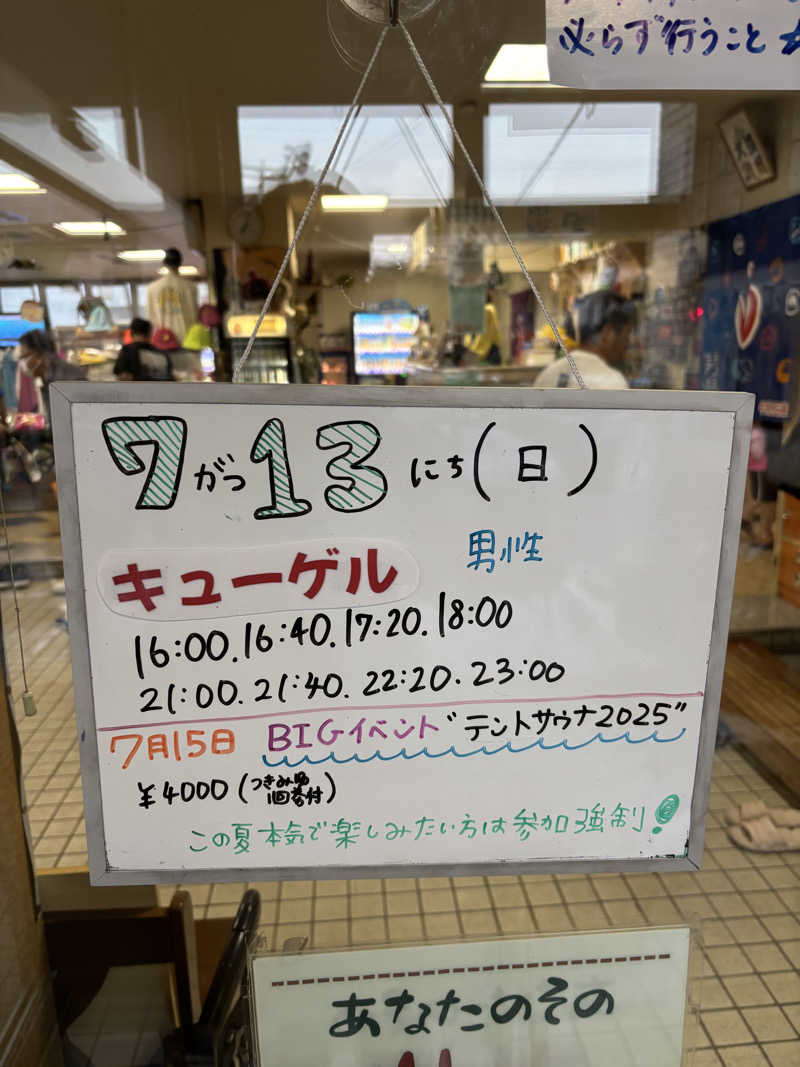 必らず行うこと
7がつ13にち(日)
キューゲル 男性
16:00.16:40.17:20.18:00
21:00.21:40.22:20.23:00
7月15日 BIGイベント"テントサウナ2025"
¥4000(つきみ湯
1回券付)
この夏本気で楽しみたい方は参加強制!
あなたのその